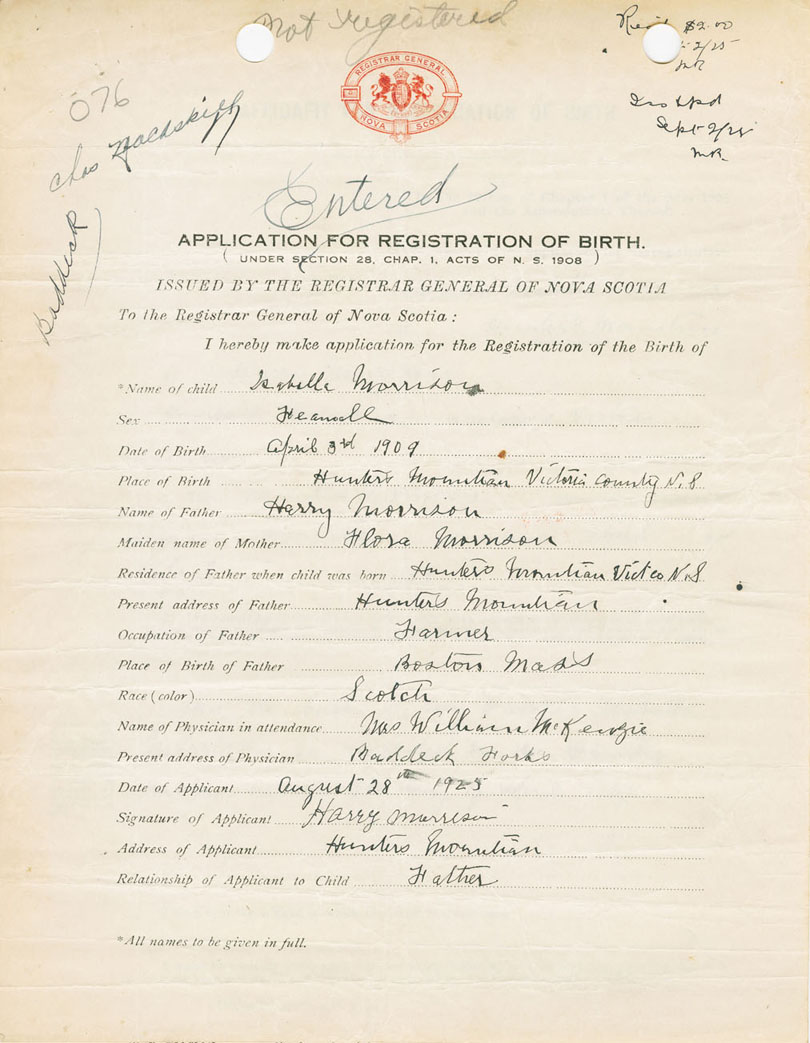 Not registered
$2.00
2/25
076
Chas
Sept 2/25
M.R.
Baddeck
REGISTRAR GENERAL
NOVA SCOTIA
Entered
APPLICATION FOR REGISTRATION OF BIRTH.
( UNDER SECTION 28, CHAP. 1, ACTS OF N. S. 1908 )
ISSUED BY THE REGISTRAR GENERAL OF NOVA SCOTIA
To the Registrar General of Nova Scotia :
I hereby make application for the Registration of the Birth of
*Name of child Isabella Morrison
Sex Feamale
Date of Birth April 3rd 1909
Place of Birth Hunters Mountian Victoria County N.S
Name of Father Harry Morrison
Maiden name of Mother Flora Morrison
Residence of Father when child was born Hunters Mountian Vict co N.S
Present address of Father Hunters Mountian
Occupation of Father Farmer
Place of Birth of Father Boston Mass
Race (color) Scotch
Name of Physician in attendance Mrs William McKenzie
Present address of Physician Baddeck Forks
Date of Applicant August 28th 1925
Signature of Applicant Harry Morrison
Address of Applicant Hunters Mountian
Relationship of Applicant to Child Father
*All names to be given in full.